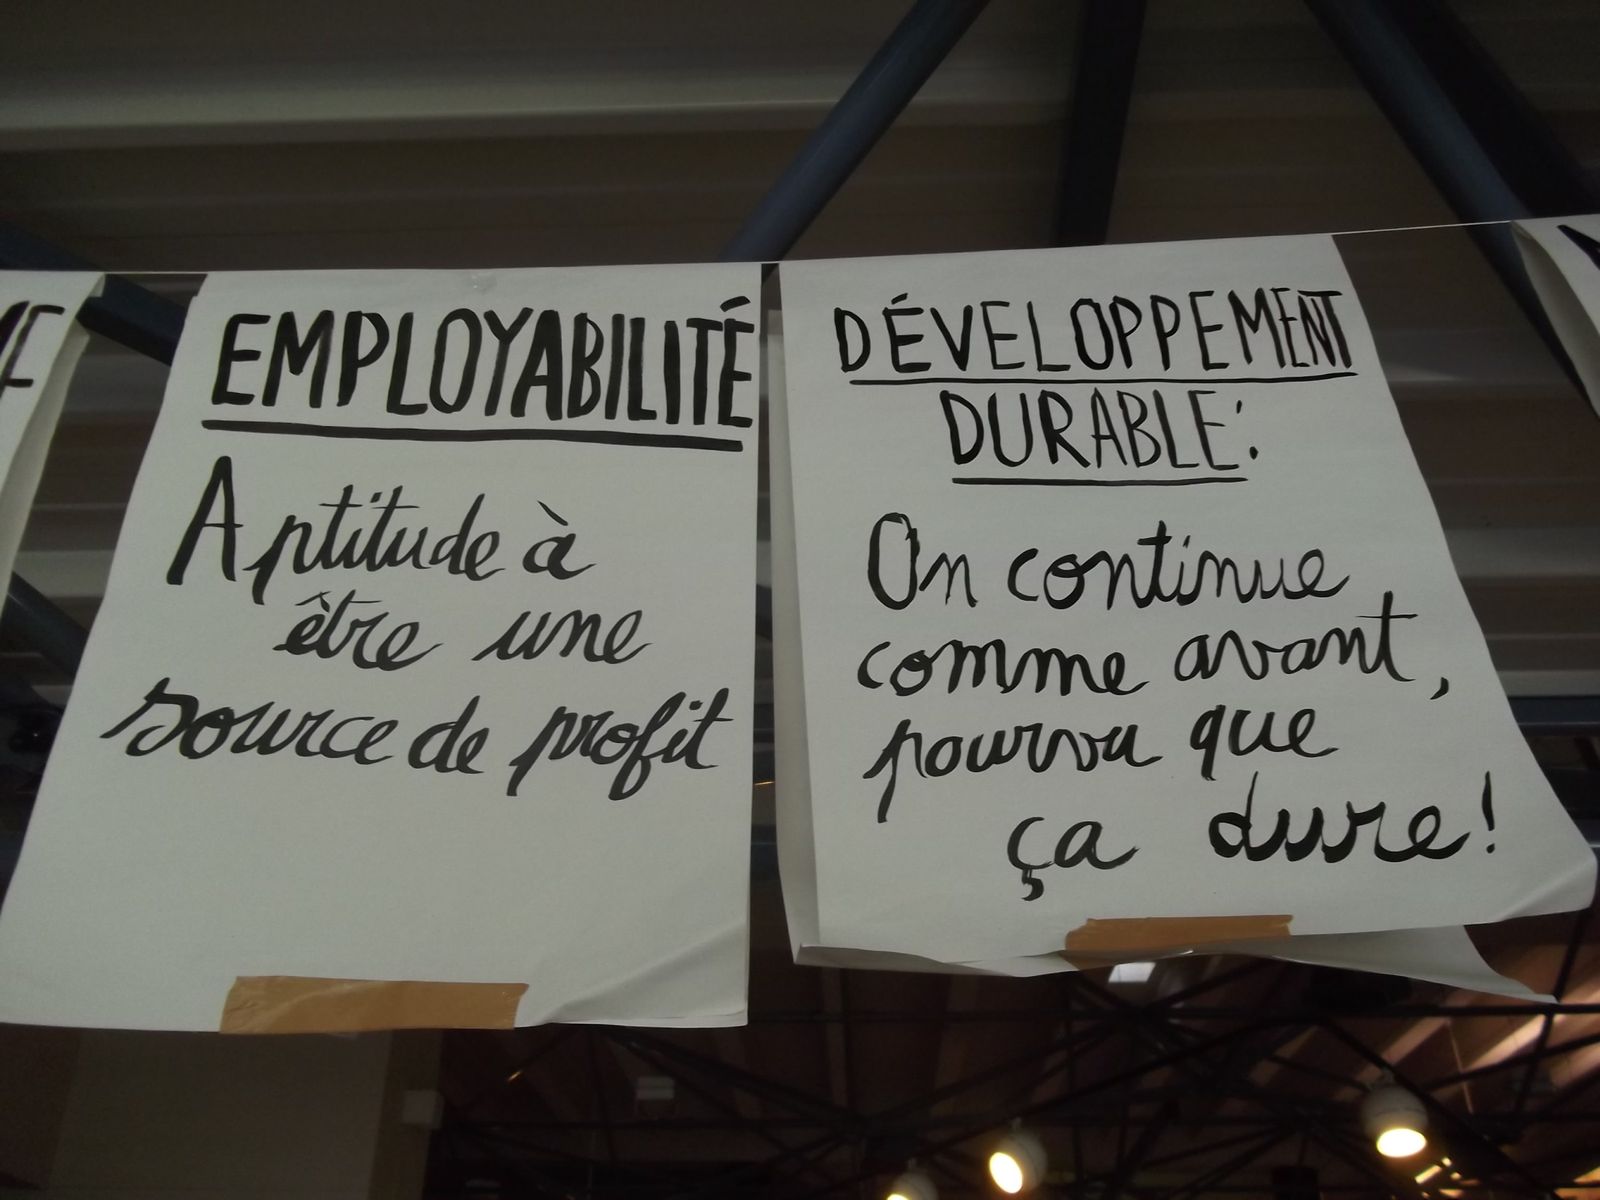 EMPLOYABILITÉ
Aptitude à
être une
source de profit
DÉVELOPPEMENT
DURABLE:
On continue
comme avant,
pourvu que
ça dure!